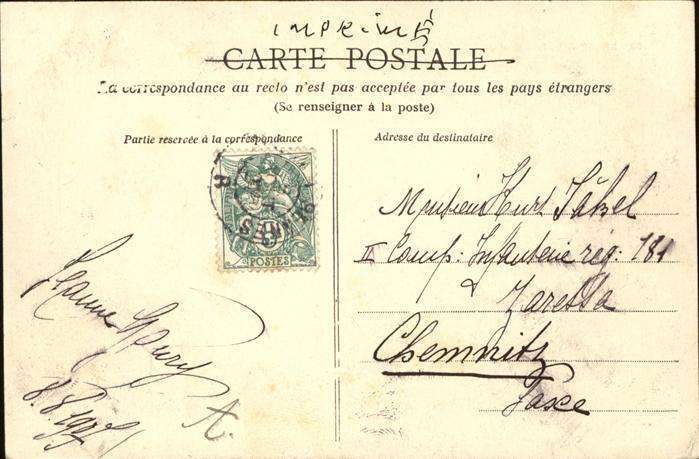 IMPRIMÉ
CARTE POSTALE
La correspondance au recto n'est pas acceptée par tous les pays étrangers
(Se renseigner à la poste)
Partie réservée à la correspondance
Adresse du destinataire
POSTES
Monsieur Kurt
II Comp: Infanterie rég: 181
Chemnitz
Saxe
Jeanne
8.8.1907
A.